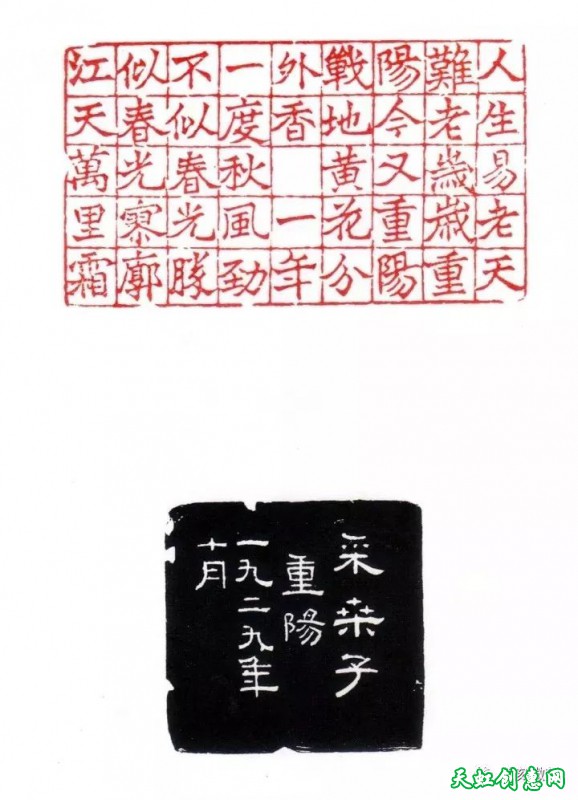 人生易老天
難老歲歲重
陽今又重陽
戰地黃花分
外香 一年
一度秋風勁
不似春光勝
似春光寥廓
江天萬里霜
采桑子
重陽
一九二九年
十月
天虹创意网